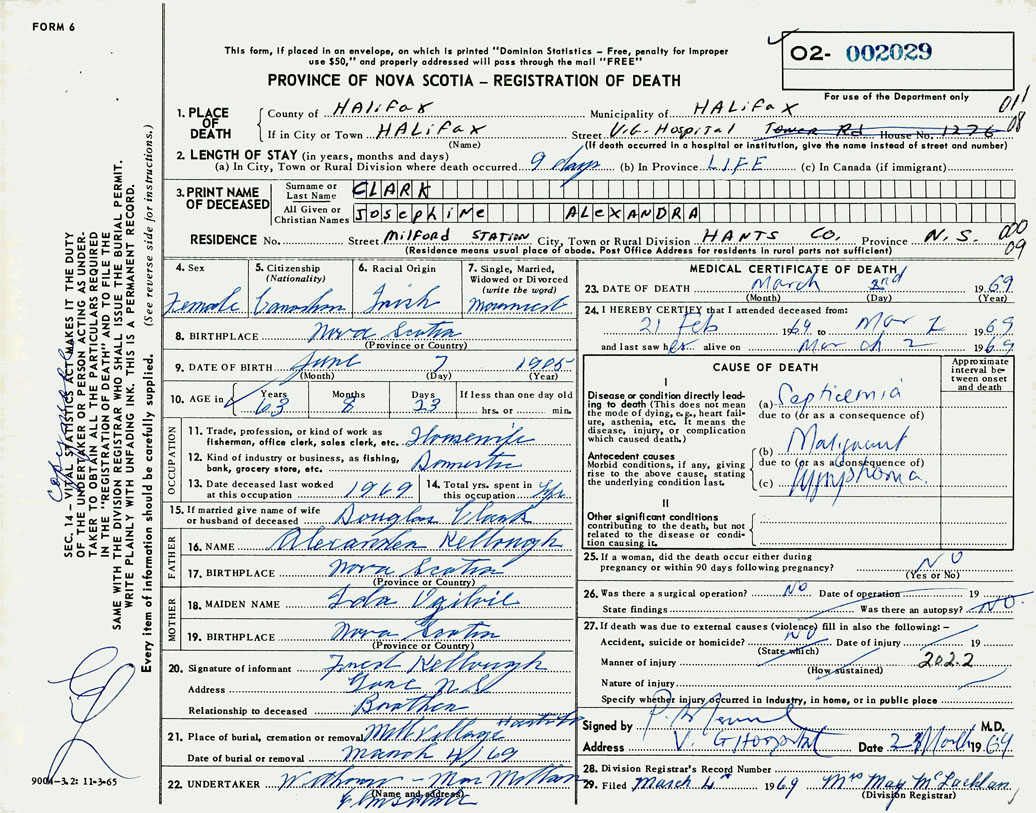 FORM 6
This form, if placed in an envelope, on which is printed "Dominion Statistics – Free, penalty for improper
use $50," and properly addressed will pass through the mail "FREE"
PROVINCE OF NOVA SCOTIA – REGISTRATION OF DEATH
02- 002029
For use of the Department only
011
08
1. PLACE OF DEATH
County of HALIFAX Municipality of HALIFAX
If in City or Town HALIFAX Street V.G. Hospital Tower Rd House No. 1276
(Name) (If death occurred in a hospital or institution, give the name instead of street and number)
2. LENGTH OF STAY (in years, months and days)
(a) In City, Town or Rural Division where death occurred 9 days (b) In Province LIFE (c) In Canada (if immigrant)
3. PRINT NAME OF DECEASED
Surname or Last Name CLARK
All Given or Christian Names JOSEPHINE ALEXANDRA
RESIDENCE No. Street Milford STATION City, Town or Rural Division HANTS Co. Province N.S.
(Residence means usual place of abode. Post Office Address for residents in rural parts not sufficient)
000
09
4. Sex
Female
5. Citizenship
(Nationality)
Canadian
6. Racial Origin
Irish
7. Single, Married,
Widowed or Divorced
(write the word)
8. BIRTHPLACE Nova Scotia
(Province or Country)
9. DATE OF BIRTH June 7 1905
(Month) (Day) (Year)
10. AGE in Years Months Days If less than one day old
63 8 23 hrs. or min.
OCCUPATION
11. Trade, profession, or kind of work as
fisherman, office clerk, sales clerk, etc. Housewife
12. Kind of industry or business, as fishing,
bank, grocery store, etc. Domestic
13. Date deceased last worked
at this occupation 1969
14. Total yrs. spent in
this occupation Life
15. If married give name of wife
or husband of deceased Douglas Clark
FATHER
16. NAME Alexander Kellough
17. BIRTHPLACE Nova Scotia
(Province or Country)
MOTHER
18. MAIDEN NAME Ida Ogilvie
19. BIRTHPLACE Nova Scotia
(Province or Country)
20. Signature of informant Kellough
Address Gore N.S.
Relationship to deceased Brother
21. Place of burial, cremation or removal Mill Village Hants Co
Date of burial or removal March 4/69
22. UNDERTAKER
(Name and address)
MEDICAL CERTIFICATE OF DEATH
23. DATE OF DEATH March 2nd 1969
(Month) (Day) (Year)
24. I HEREBY CERTIFY that I attended deceased from:
21 Feb 1969 to Mar 2 1969
and last saw her alive on March 2 1969
CAUSE OF DEATH
Approximate
interval be-
tween onset
and death
I
Disease or condition directly lead-
ing to death (This does not mean
the mode of dying, e.g., heart fail-
ure, asthenia, etc. It means the
disease, injury, or complication
which caused death.)
(a) Septicemia
due to (or as a consequence of)
Antecedent causes
Morbid conditions, if any, giving
rise to the above cause, stating
the underlying condition last.
(b) Malignant
due to (or as a consequence of)
(c) lymphoma.
II
Other significant conditions
contributing to the death, but not
related to the disease or condi-
tion causing it.
25. If a woman, did the death occur either during
pregnancy or within 90 days following pregnancy? NO
(Yes or No)
26. Was there a surgical operation? NO Date of operation 19
State findings Was there an autopsy? NO.
27. If death was due to external causes (violence) fill in also the following: –
Accident, suicide or homicide? NO Date of injury 19
(State which)
Manner of injury 202.2
(How sustained)
Nature of injury
Specify whether injury occurred in industry, in home, or in public place
Signed by M.D.
Address V. G Hospital Date 2 March 1969
28. Division Registrar's Record Number
29. Filed March 4th 1969 Mrs May McLachlan
(Division Registrar)
SEC. 14 – VITAL STATISTICS ACT MAKES IT THE DUTY
OF THE UNDERTAKER OR PERSON ACTING AS UNDER-
TAKER TO OBTAIN ALL THE PARTICULARS REQUIRED
IN THE "REGISTRATION OF DEATH" AND TO FILE THE
SAME WITH THE DIVISION REGISTRAR WHO SHALL ISSUE THE BURIAL PERMIT.
WRITE PLAINLY WITH UNFADING INK. THIS IS A PERMANENT RECORD.
Every item of information should be carefully supplied. (See reverse side for instructions.)
9004-3.2: 11-3-65